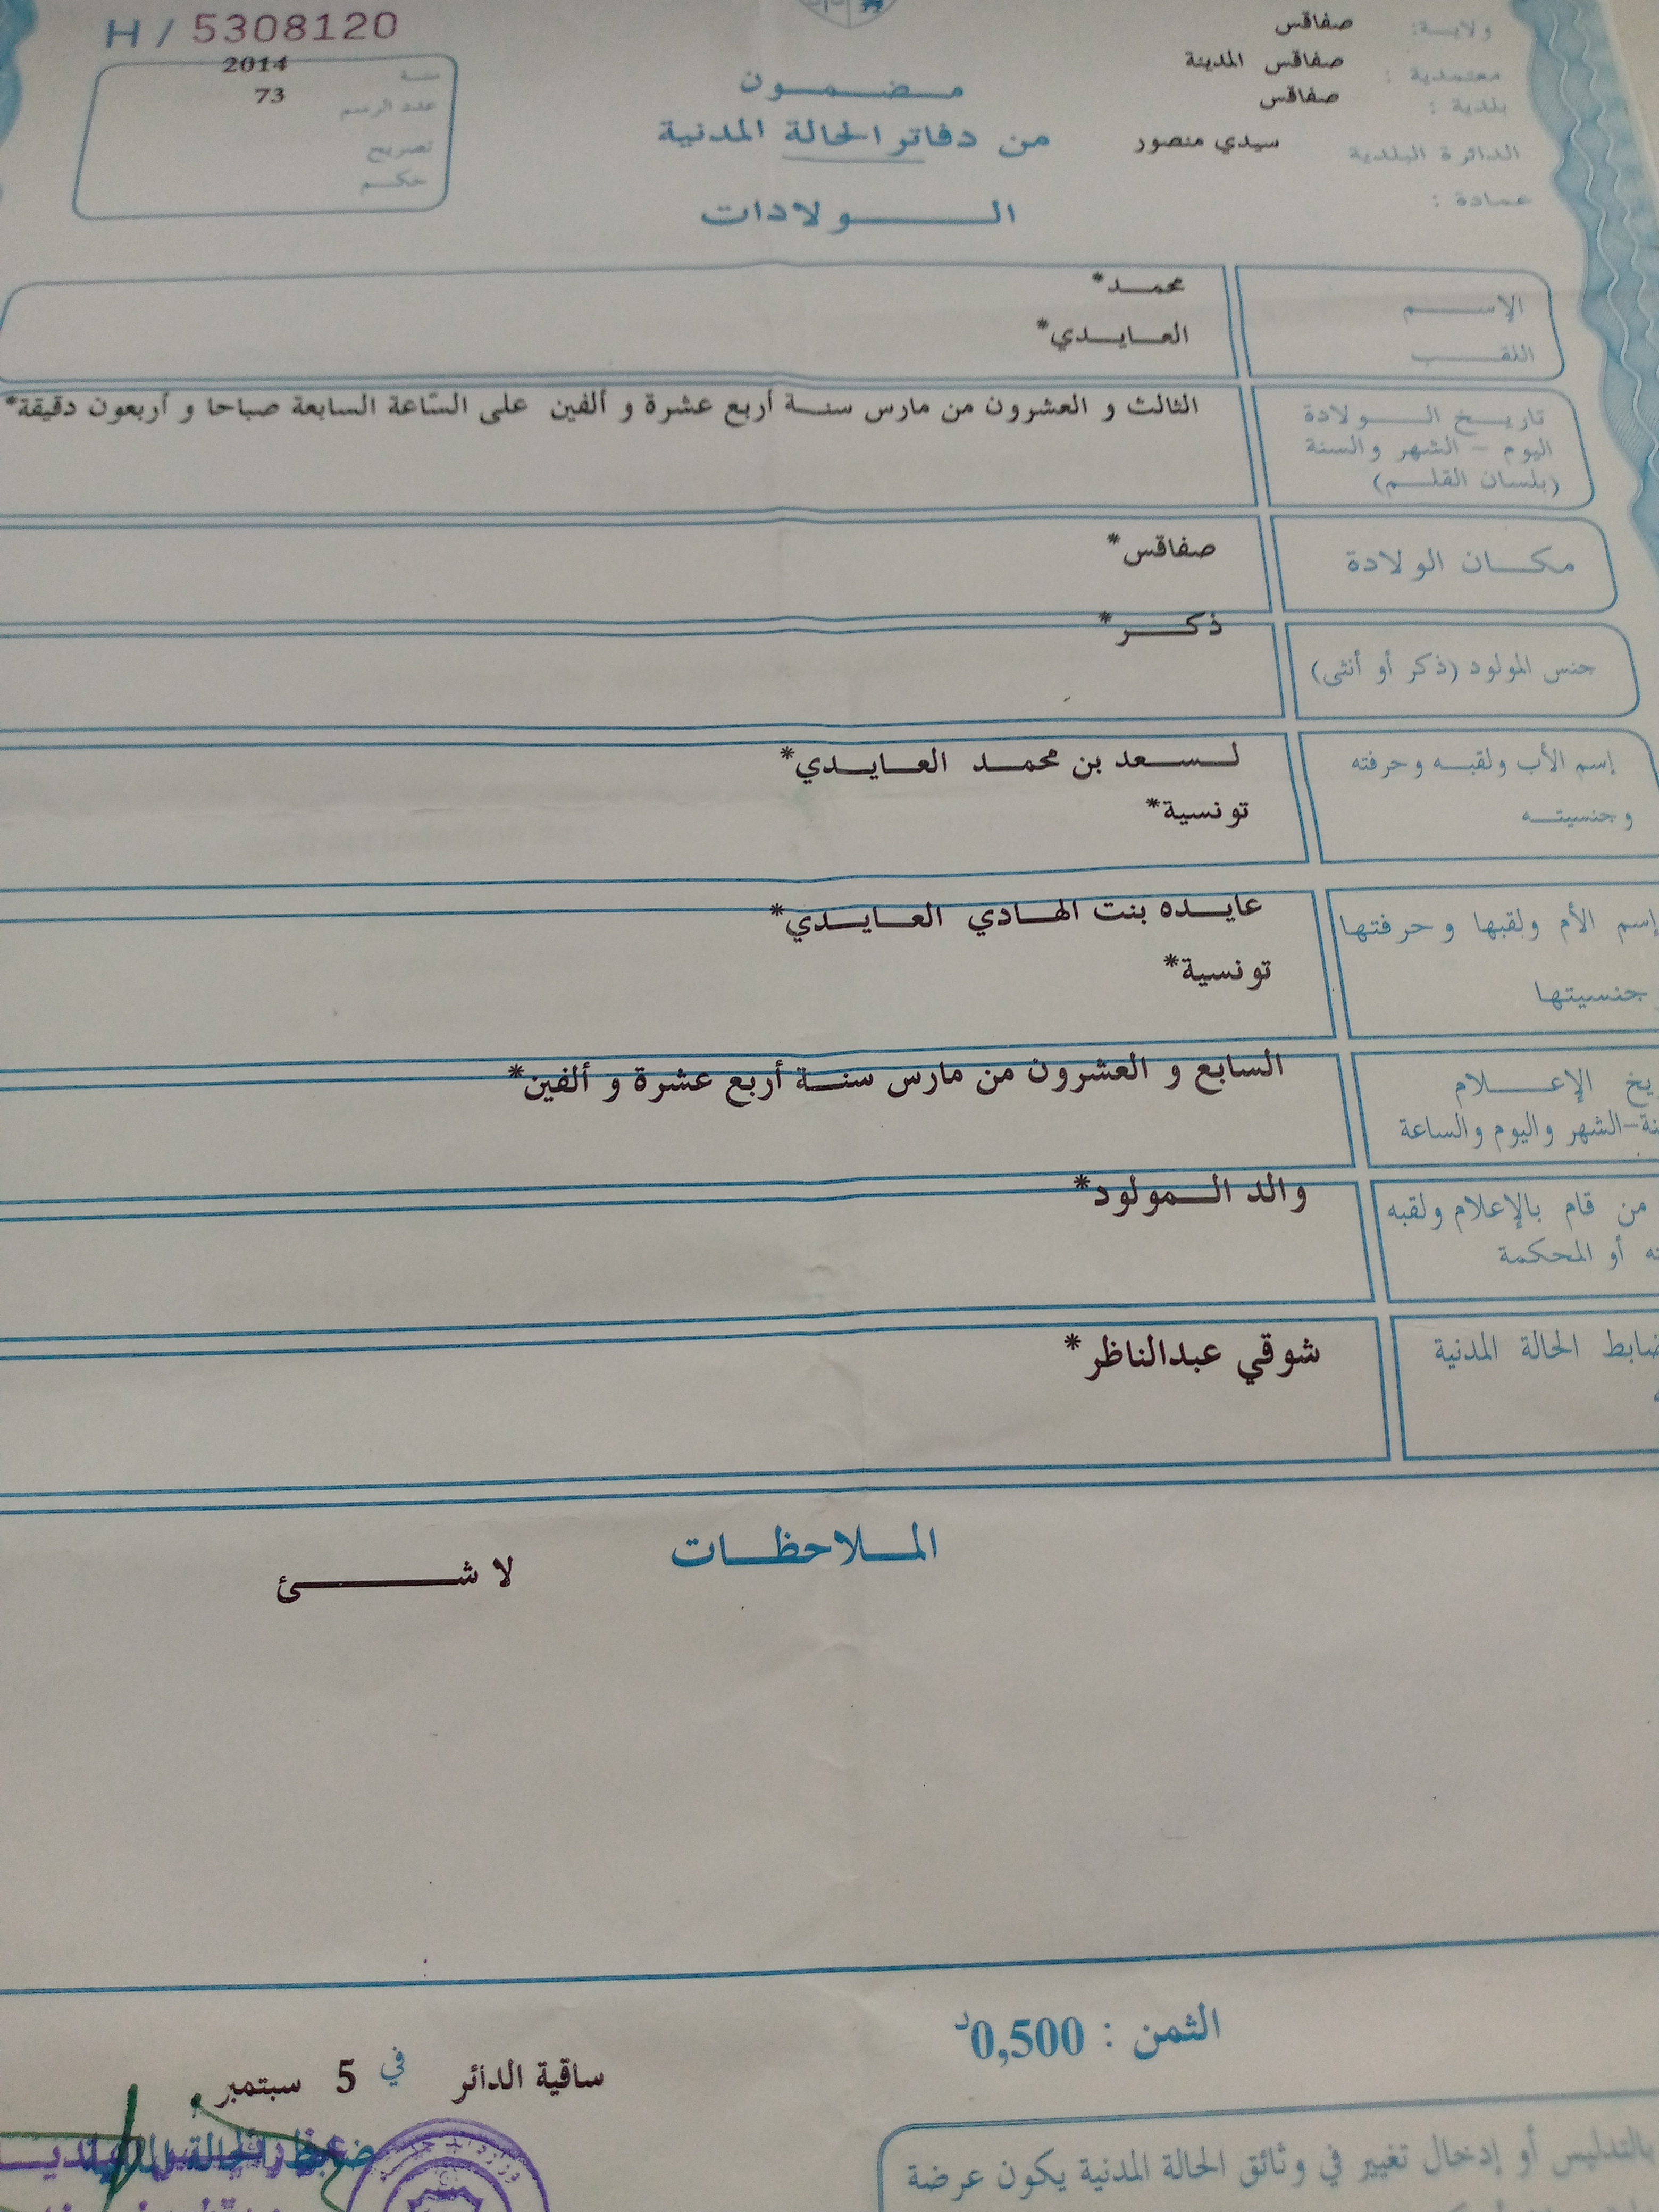 H / 5308120
سنة 2014
عدد الرسم 73
تصريح
حكم
ولاية: صفاقس
معتمدية : صفاقس المدينة
بلدية : صفاقس
الدائرة البلدية سيدي منصور
عمادة :
مضمون
من دفاتر الحالة المدنية
الولادات
الإسم محمد*
اللقب العايدي*
تاريخ الولادة الثالث و العشرون من مارس سنة أربع عشرة و ألفين على السّاعة السابعة صباحا و أربعون دقيقة*
اليوم - الشهر والسنة
(بلسان القلم)
مكان الولادة صفاقس*
جنس المولود (ذكر أو أنثى) ذكر*
إسم الأب ولقبه وحرفته لسعد بن محمد العايدي*
وجنسيته تونسية*
إسم الأم ولقبها وحرفتها عايده بنت الهادي العايدي*
جنسيتها تونسية*
الإعلام السابع و العشرون من مارس سنة أربع عشرة و ألفين*
-الشهر واليوم والساعة
من قام بالإعلام ولقبه والد المولود*
أو المحكمة
الحالة المدنية شوقي عبدالناظر*
الملاحظات
لا شئ
الثمن : 0,500د
ساقية الدائر في 5 سبتمبر
بالتدليس أو إدخال تغيير في وثائق الحالة المدنية يكون عرضة